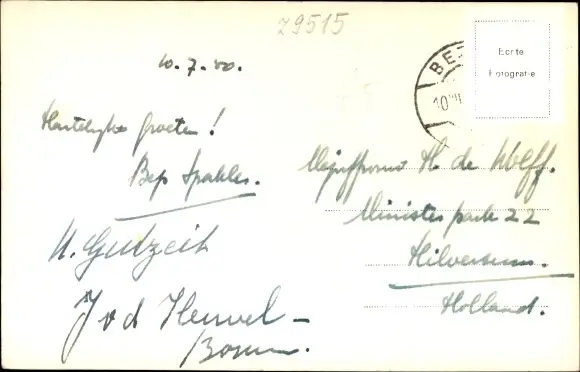 29515
10.7.50.
Hartelijke Groeten!
Bep
H. Gutzeit
J v d Heuvel –
BE
10
Echte
Fotografie
Mejuffrouw H. de Wolff.
Ministerpark 22
Hilversum.
Holland.